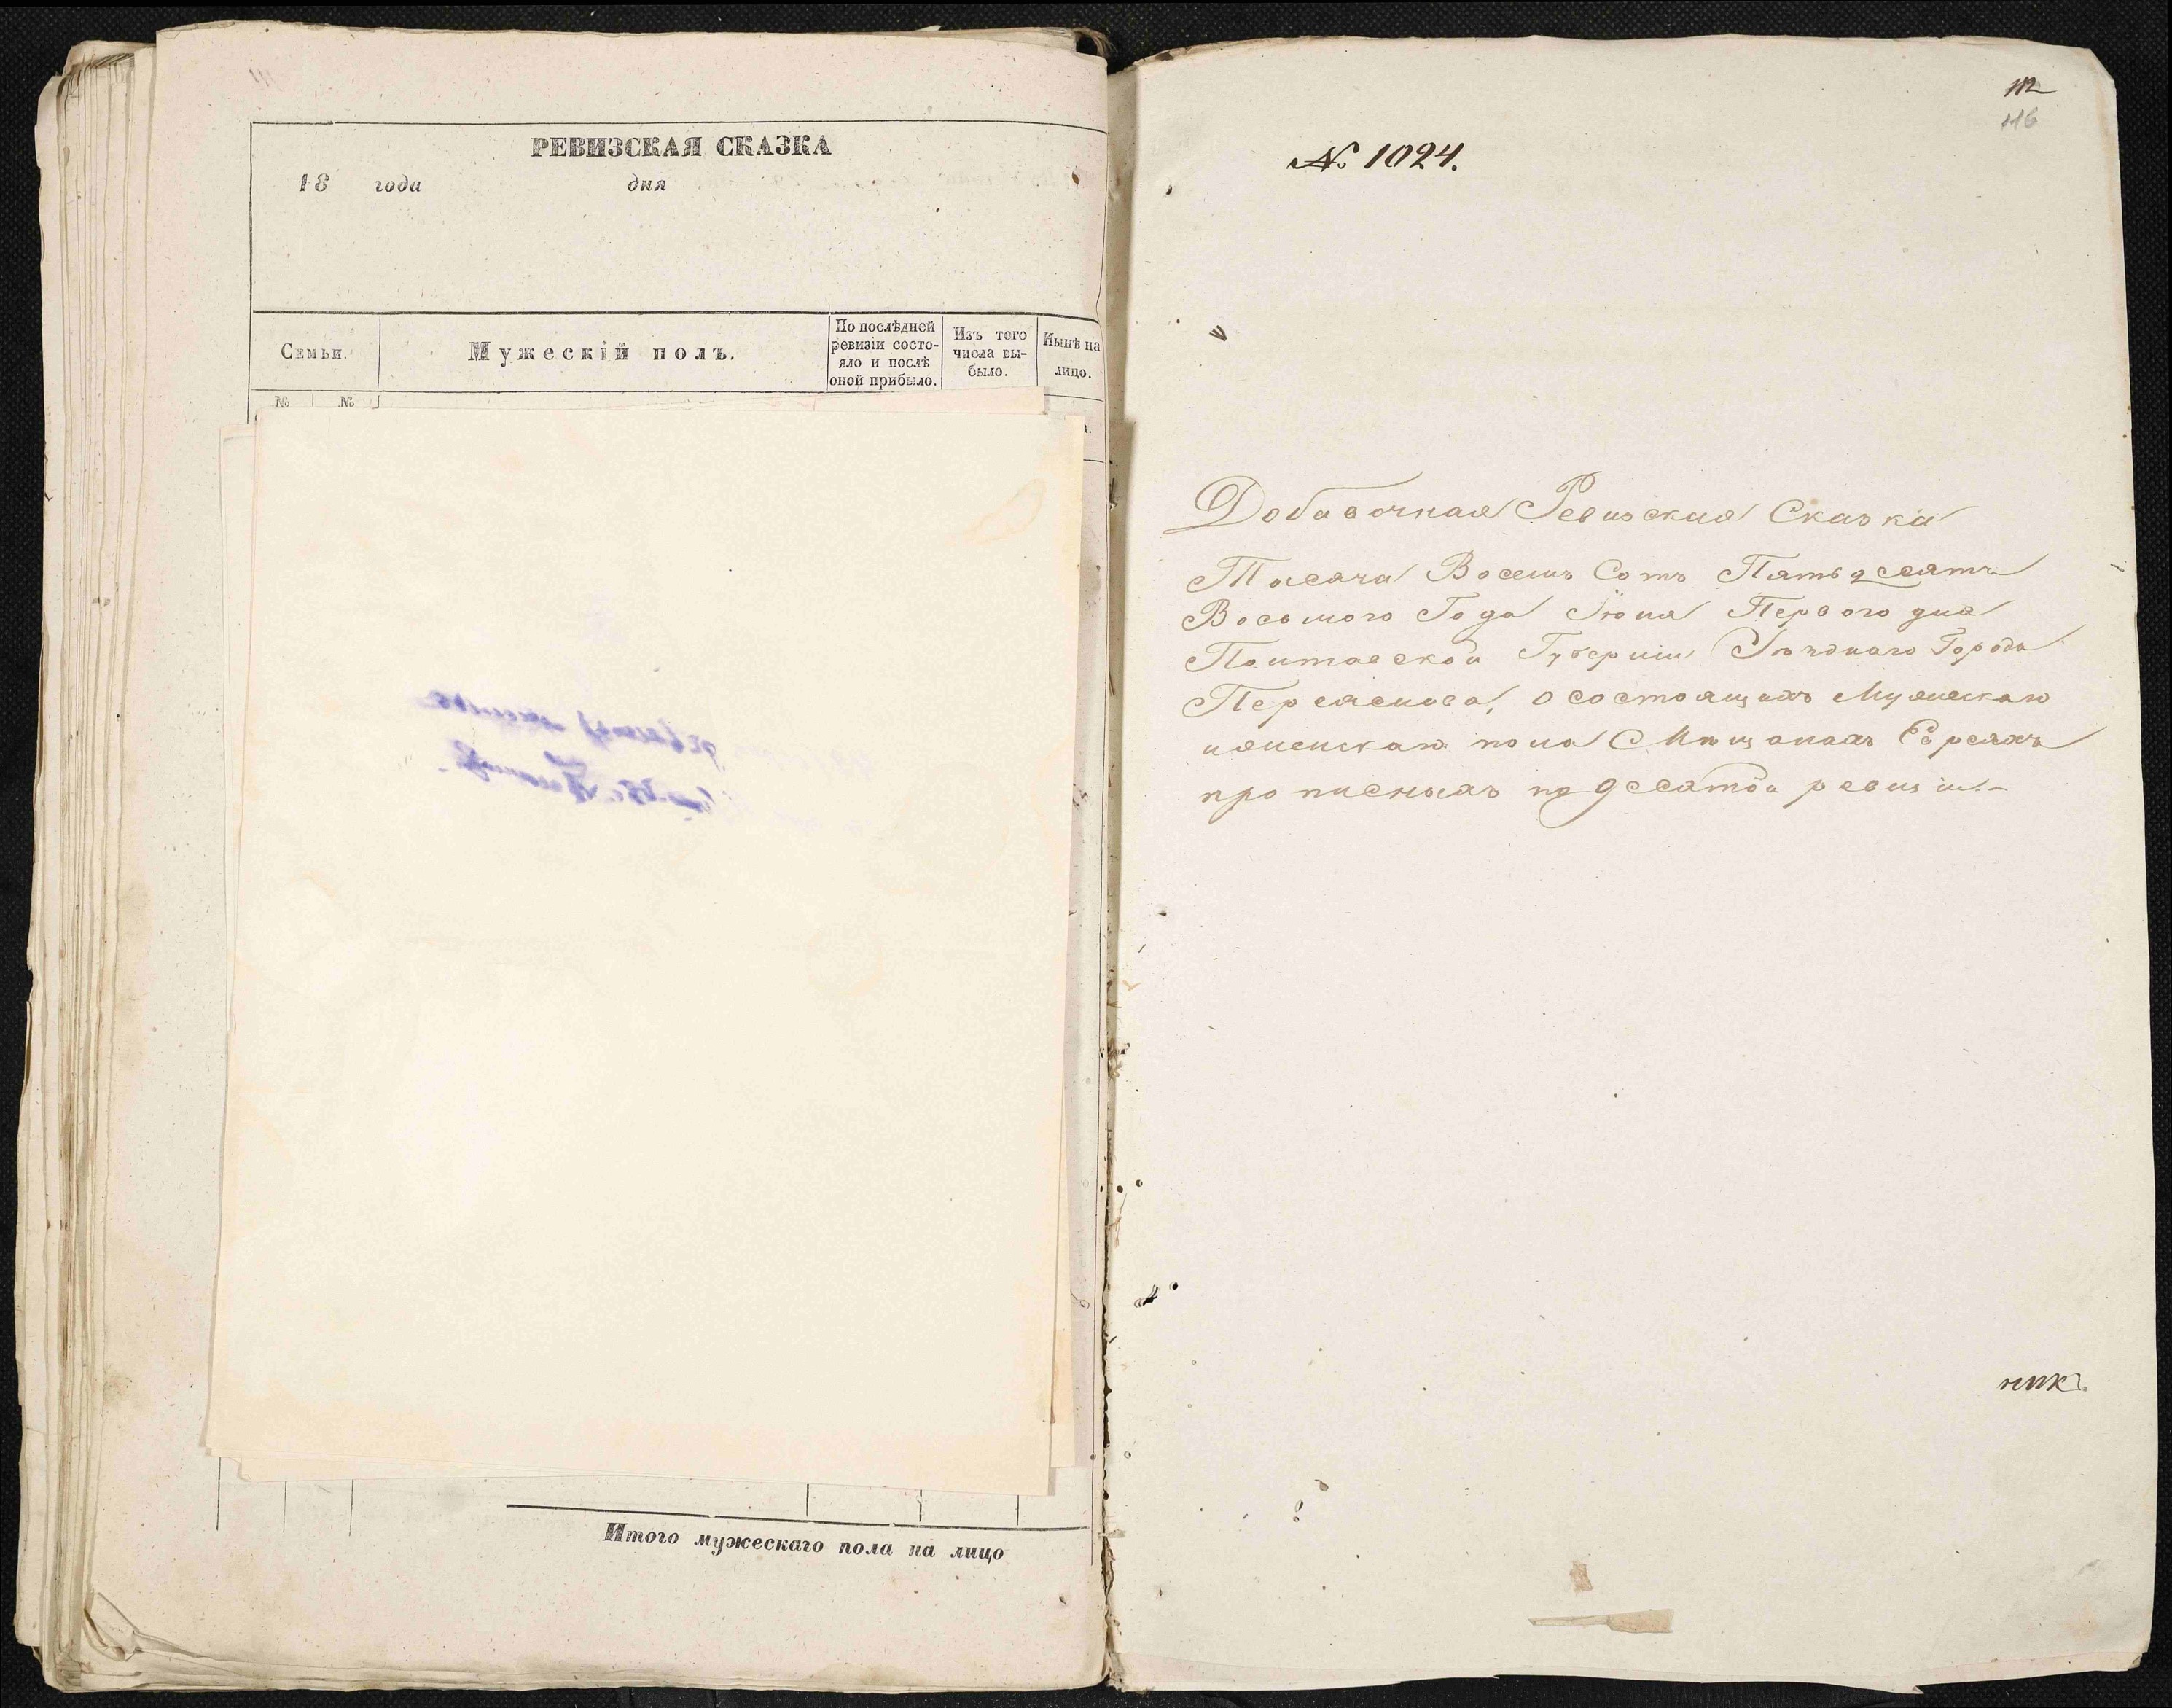 РЕВИЗСКАЯ СКАЗКА
18 года дня
Семьи.
Мужескій полъ.
По послѣдней
ревизіи состо-
яло и послѣ
оной прибыло.
Изъ того
числа вы-
было.
Нынѣ на
лицо.
№ №
Итого мужескаго пола на лицо
112
116
№ 1024.
Добавочная Ревизская Сказка
Тысяча Восемь Сотъ Пятьдесятъ
Восьмого Года Іюня Первого дня
Полтавской Губерніи Уѣзднаго Города
Переяслова, о состоящихъ Мужескаго
иженскаго пола Мѣщанахъ Евреяхъ
прописныхъ по десятой ревизіи.-
никъ.